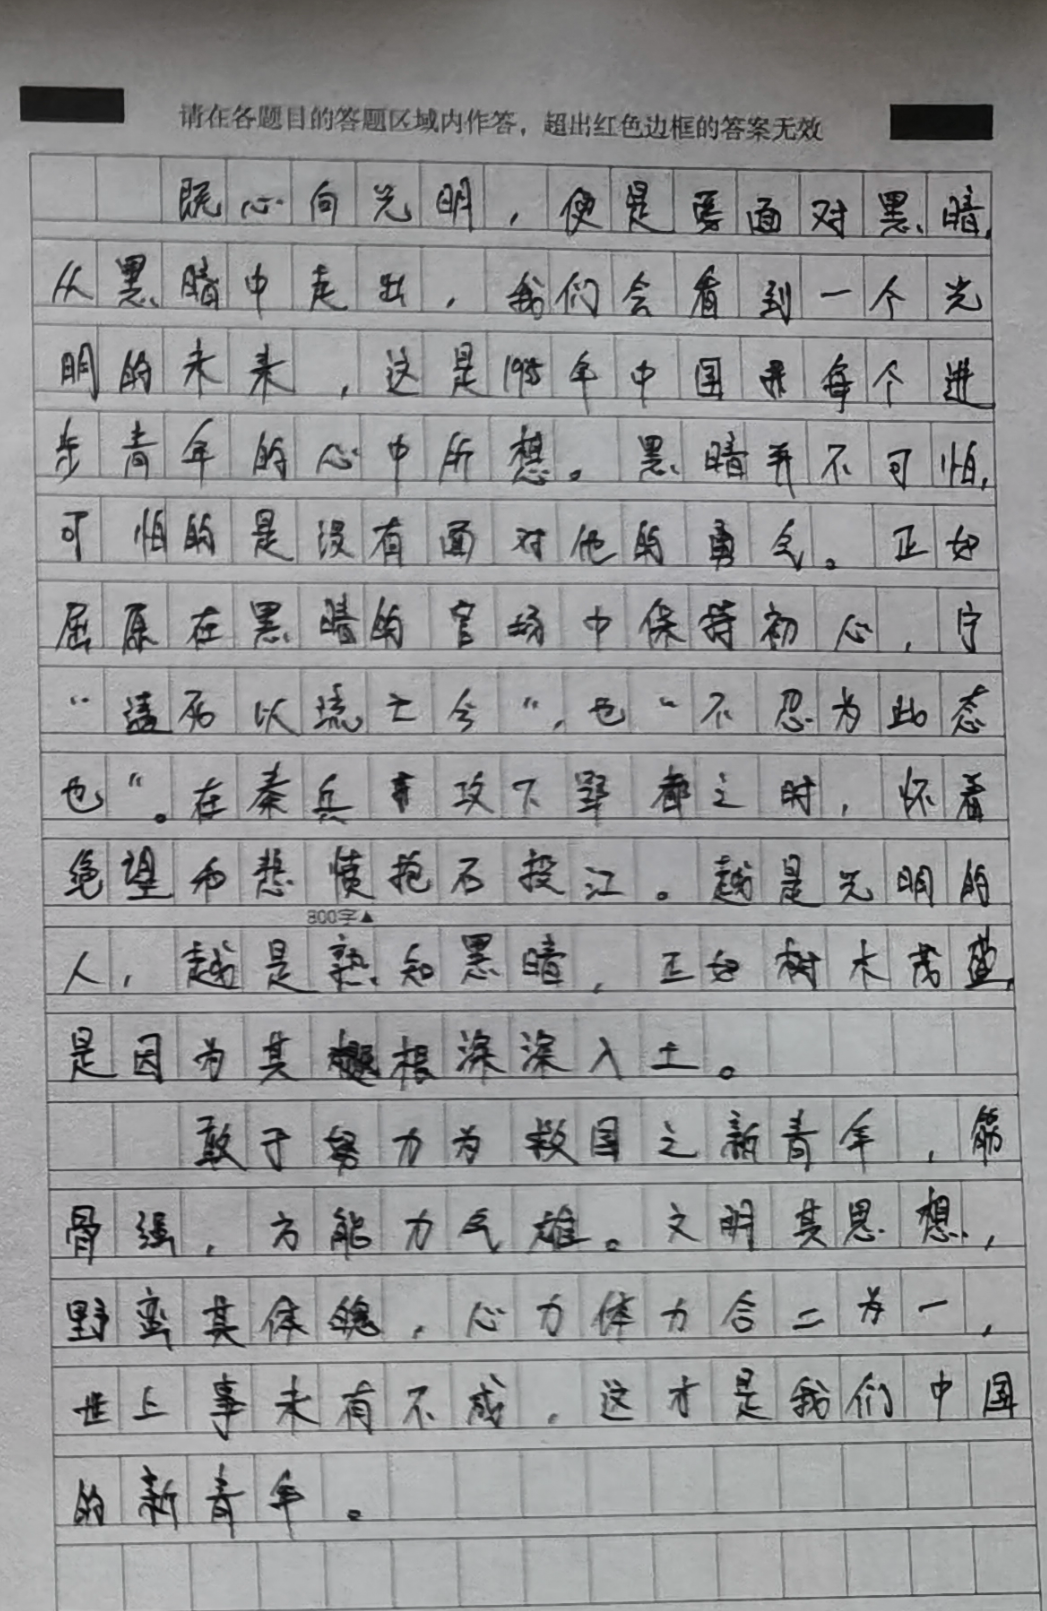 请在各题目的答题区域内作答，超出红色边框的答案无效
既心向光明，便是要面对黑暗，
从黑暗中走出，我们会看到一个光
明的未来，这是1915年中国每个进
步青年的心中所想。黑暗并不可怕，
可怕的是没有面对他的勇气。正如
屈原在黑暗的官场中保持初心，宁
“溘死以流亡兮”，也“不忍为此态
也”。在秦兵攻下郢都之时，怀着
绝望和悲愤抱石投江。越是光明的
800字▲
人，越是熟知黑暗，正如树木茂盛，
是因为其根深深入土。
敢于努力为救国之新青年，筋
骨强，方能力气雄。文明其思想，
野蛮其体魄，心力体力合二为一，
世上事未有不成，这才是我们中国
的新青年。